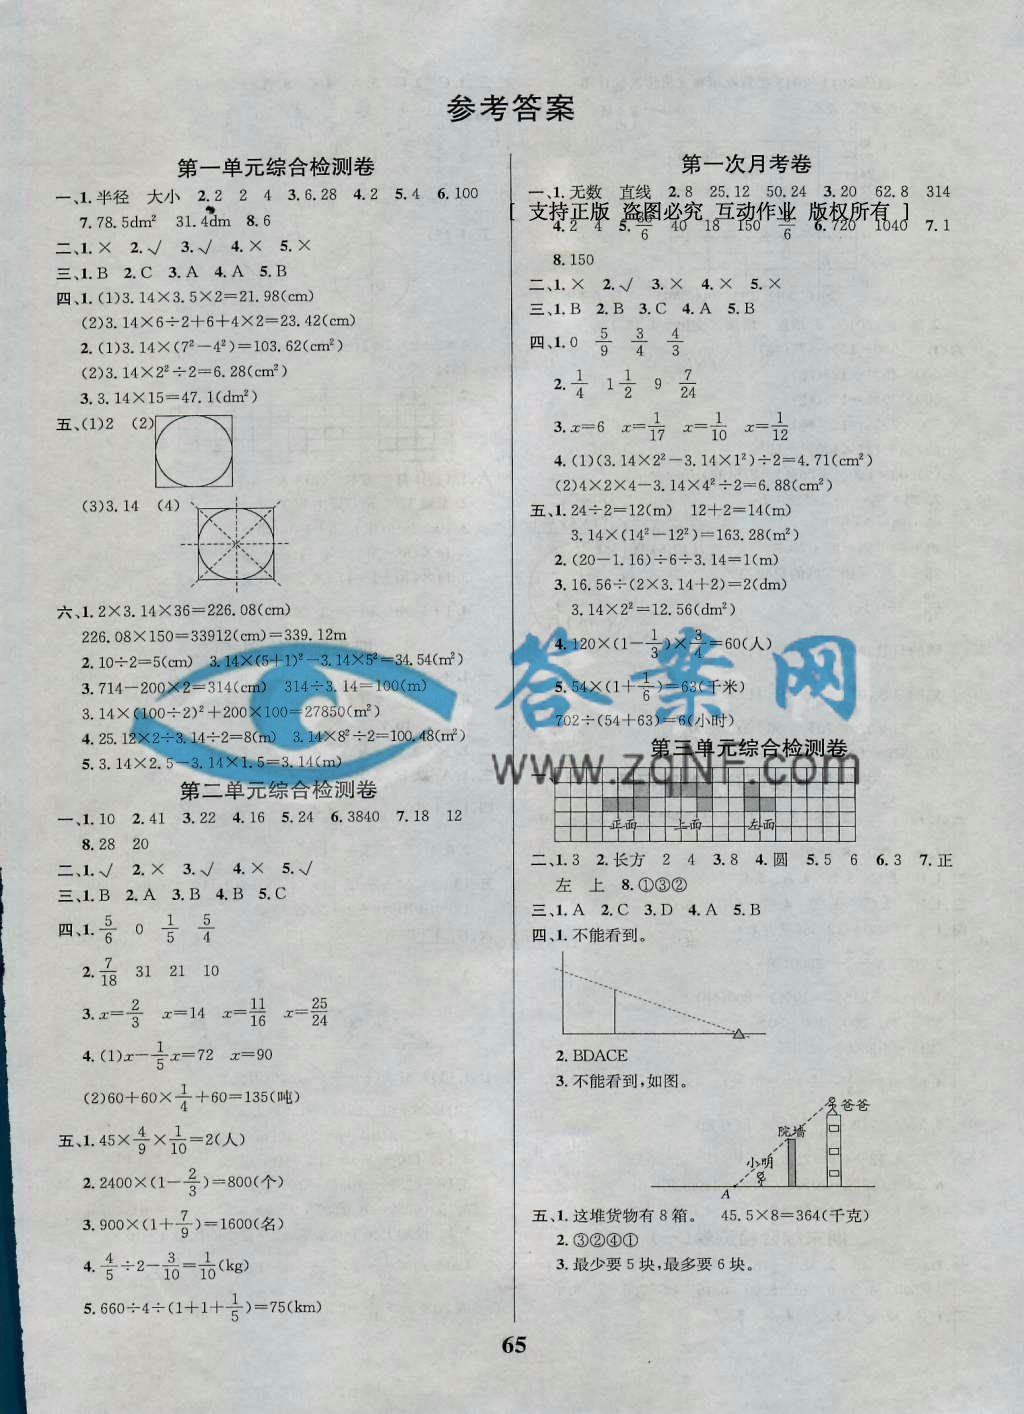 参考答案
第一单元综合检测卷
一、1.半径 大小 2.2 2 4 3.6.28 4.2 5.4 6.100
7.78.5dm² 31.4dm 8.6
二、1.× 2.√ 3.√ 4.× 5.×
三、1.B 2.C 3.A 4.A 5.B
四、1.(1)3.14×3.5×2=21.98(cm)
(2)3.14×6÷2+6+4×2=23.42(cm)
2.(1)3.14×(7²-4²)=103.62(cm²)
(2)3.14×2²÷2=6.28(cm²)
3.3.14×15=47.1(dm²)
五、(1)2 (2)
(3)3.14 (4)
六、1.2×3.14×36=226.08(cm)
226.08×150=33912(cm)=339.12m
2.10÷2=5(cm) 3.14×(5+1)²-3.14×5²=34.54(m²)
3.714-200×2=314(cm) 314÷3.14=100(cm)
3.14×(100÷2)²+200×100=27850(m²)
4.25.12×2÷3.14÷2=8(m) 3.14×8²÷2=100.48(m²)
5.3.14×2.5-3.14×1.5=3.14(m)
第二单元综合检测卷
一、1.10 2.41 3.22 4.16 5.24 6.3840 7.18 12
8.28 20
二、1.√ 2.× 3.√ 4.√ 5.×
三、1.B 2.A 3.B 4.B 5.C
四、1.5/6 0 1/5 5/4
2.7/18 31 21 10
3.x=2/3 x=14 x=11/16 x=25/24
4.(1)x-1/5x=72 x=90
(2)60+60×1/4+60=135(吨)
五、1.45×4/9×1/10=2(人)
2.2400×(1-2/3)=800(个)
3.900×(1+7/9)=1600(名)
4.4/5÷2-3/10=1/10(kg)
5.660÷4÷(1+1+1/5)=75(km)
第一次月考卷
一、1.无数 直线 2.8 25.12 50.24 3.20 62.8 314
[ 支持正版 盗图必究 互动作业 版权所有 ]
4.2 4 5. 40 18 150 6.720 1040 7.1
8.150
二、1.× 2.√ 3.× 4.× 5.×
三、1.B 2.B 3.C 4.A 5.B
四、1.0 5/9 3/4 4/3
2.1/4 1 1/2 9 7/24
3.x=6 x=1/17 x=1/10 x=1/12
4.(1)(3.14×2²-3.14×1²)÷2=4.71(cm²)
(2)4×2×4-3.14×4²÷2=6.88(cm²)
五、1.24÷2=12(m) 12+2=14(m)
3.14×(14²-12²)=163.28(m²)
2.(20-1.16)÷6÷3.14=1(m)
3.16.56÷(2×3.14+2)=2(dm)
3.14×2²=12.56(dm²)
4.120×(1-1/3)×3/4=60(人)
5.54×(1+1/6)=63(千米)
702÷(54+63)=6(小时)
答案网
www.zqNF.com
第三单元综合检测卷
一、
正面 上面 左面
二、1.3 2.长方 2 4 3.8 4.圆 5.5 6 6.3 7.正
左 上 8.①③②
三、1.A 2.C 3.D 4.A 5.B
四、1.不能看到。
2.BDACE
3.不能看到,如图。
爸爸
院墙
小明
A
五、1.这堆货物有8箱。 45.5×8=364(千克)
2.③②④①
3.最少要5块,最多要6块。
65